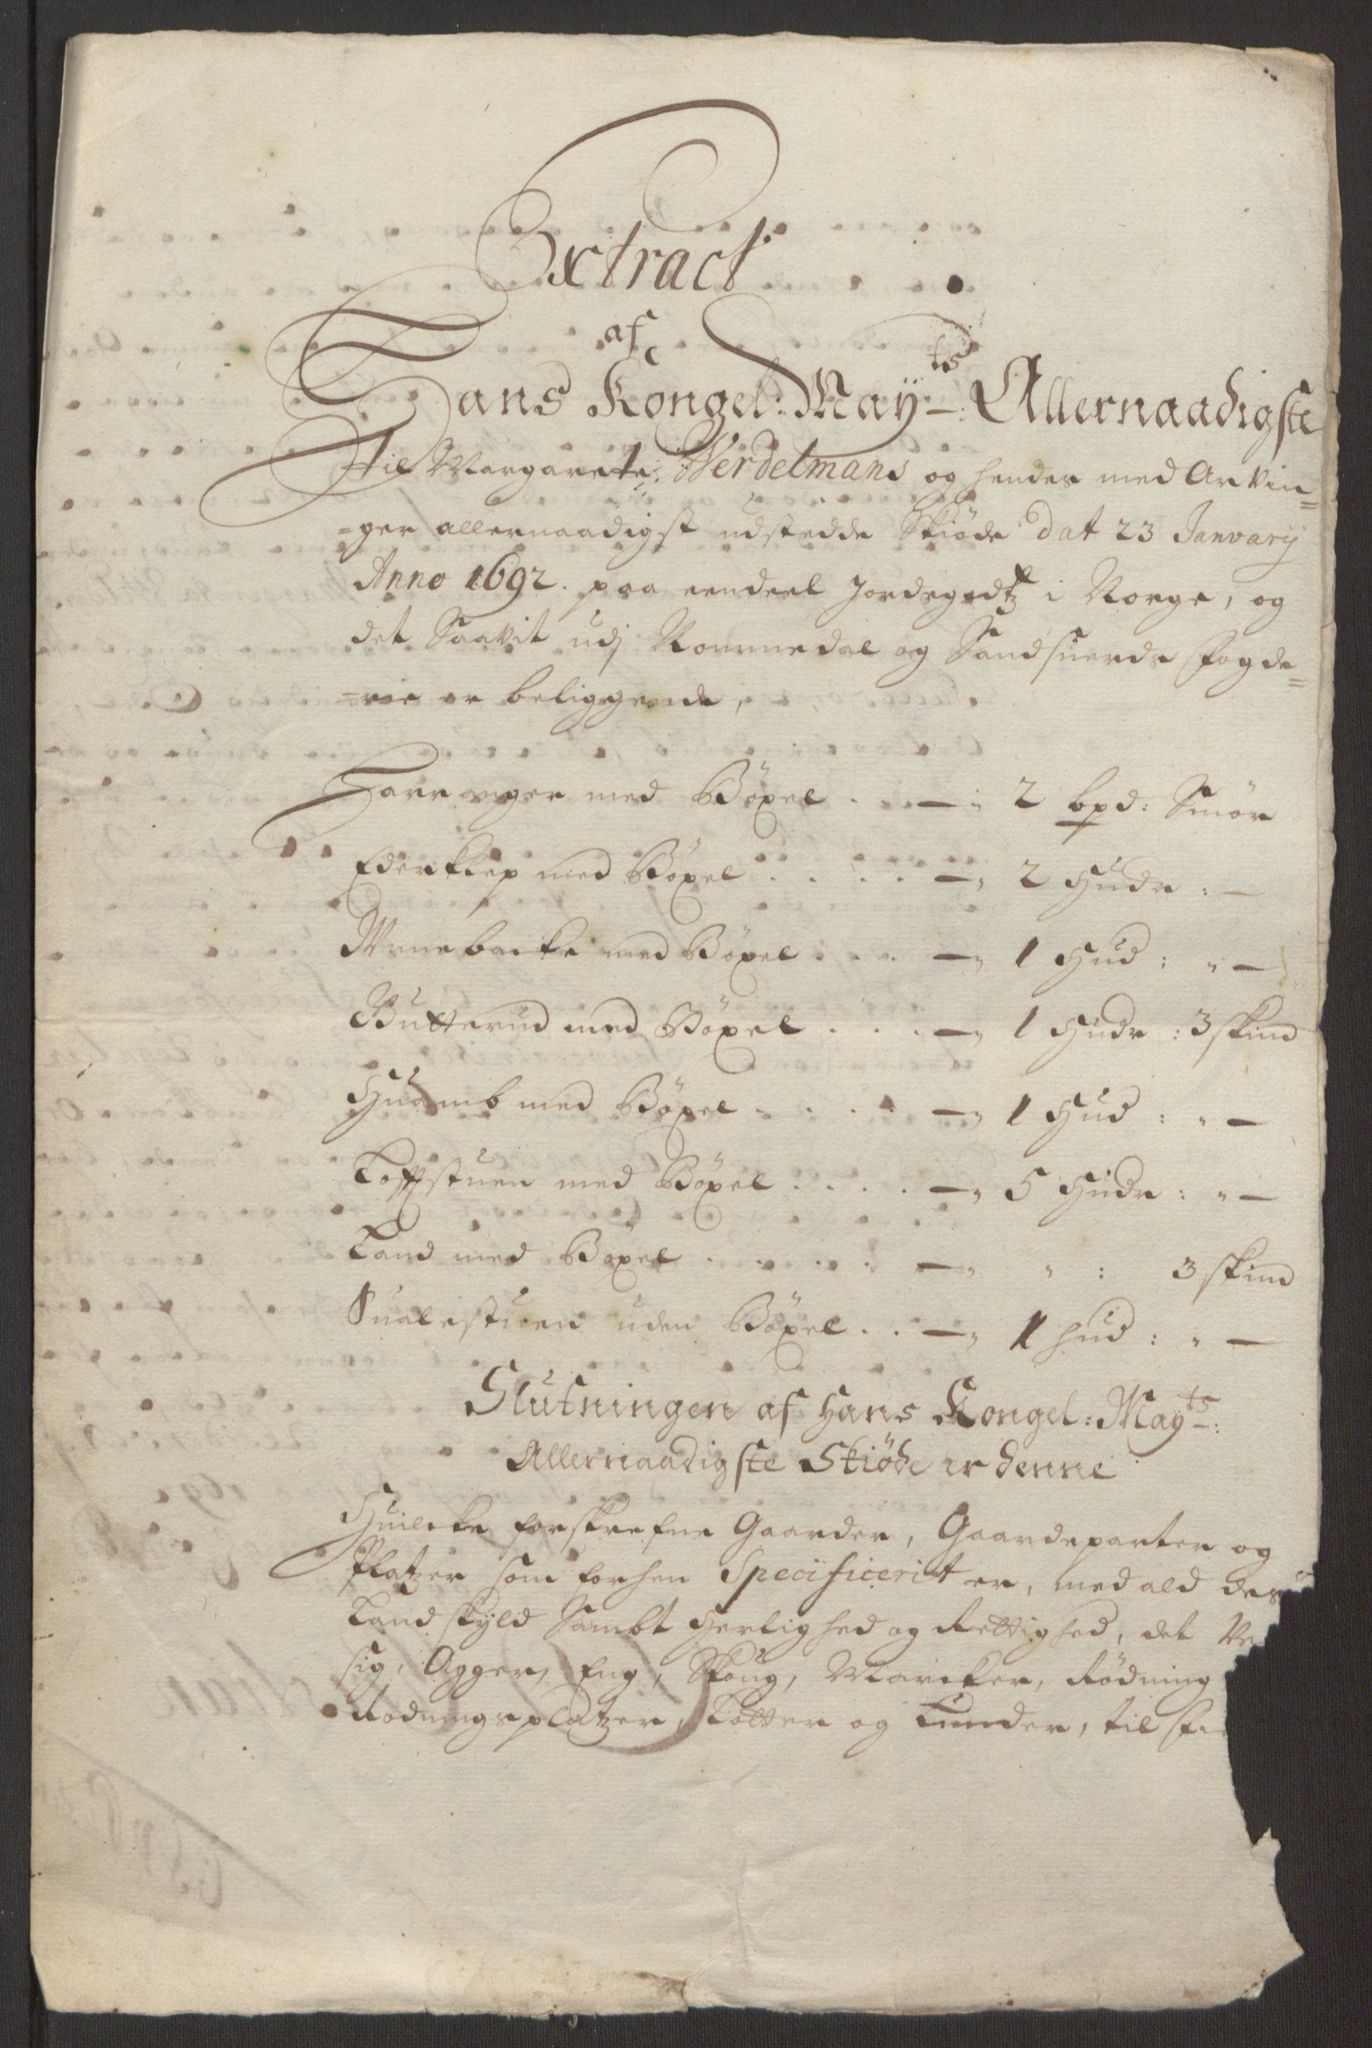 Extract
af
Hans Kongel: May.ts Allernaadigste
til Margarete Werdelmans og hendes med Arvin=
=ger allernaadigst udstedde Skiøde dat 23 Janvary
Anno 1692. paa eendeel Jordegodtz i Norge, og
det Saavit udj Nommedal og Sandsuerds fogde=
=rie er beliggende,
med Böxel . . — 2 bpd: Smör
med Böxel . . . . — 2 Hude : —
med Böxel . . . — 1 Hud : „ —
Butterud med Böxel . . . — 1 Hude : 3 skind
Huamb med Böxel . . . . — 1 Hud : „ —
Toffstuen med Böxel . . . . — 5 Hude : „ —
Land med Böxel . . . . . — „ : 3 skind
Sualestuen uden Böxel . . — 1 hud : „ —
Slutningen af Hans Kongel: May.ts:
Allernaadigste Skiøde er denne
Huilcke forskrefne Gaarder, Gaardeparter og
Platzer som forhen Specificerit er, med ald des
Landskyld Sambt Herlighed og Rettighed, det
sig, Agger, Eng, Skoug, Marcker, Rödning
Rödningsplatzer, Tötter og Lunder, til